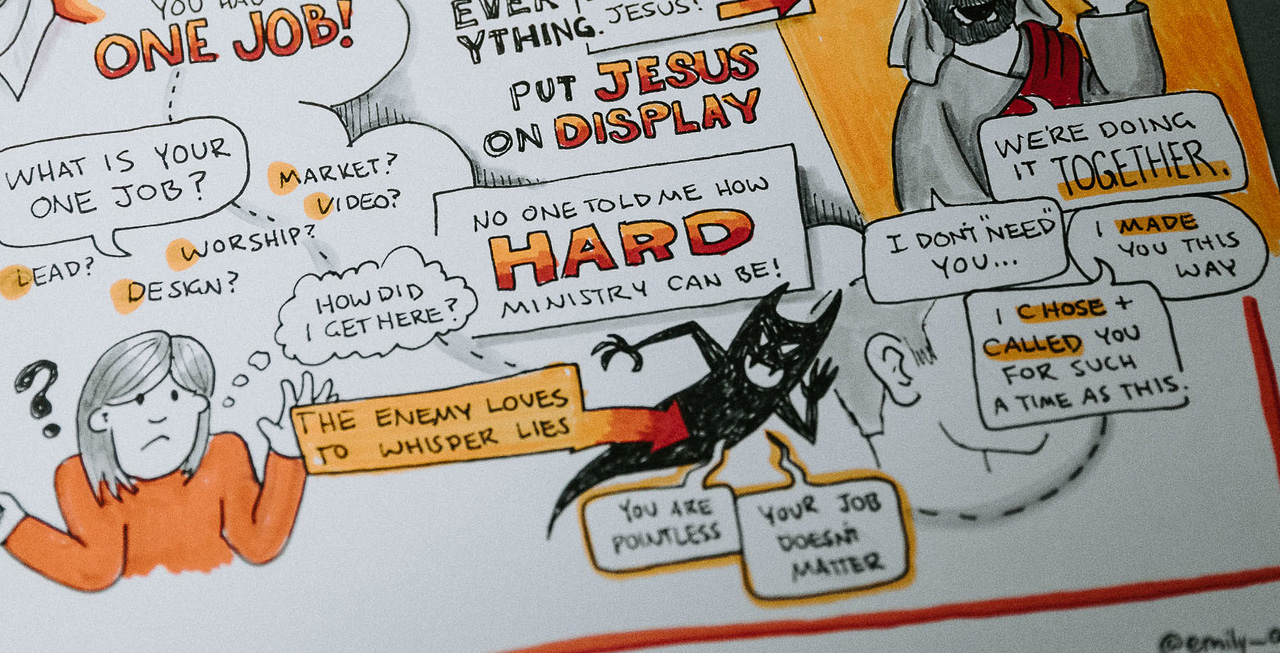 YOU HAD
ONE JOB!
EVER
YTHING.
JESUS!
PUT JESUS
ON DISPLAY
WHAT IS YOUR
ONE JOB?
MARKET?
VIDEO?
WORSHIP?
LEAD?
DESIGN?
HOW DID
I GET HERE?
NO ONE TOLD ME HOW
HARD
MINISTRY CAN BE!
WE'RE DOING
IT TOGETHER.
I DON'T "NEED"
YOU...
I MADE
YOU THIS
WAY
I CHOSE +
CALLED YOU
FOR SUCH
A TIME AS THIS.
?
THE ENEMY LOVES
TO WHISPER LIES
YOU ARE
POINTLESS
YOUR JOB
DOESN'T
MATTER
@emily_